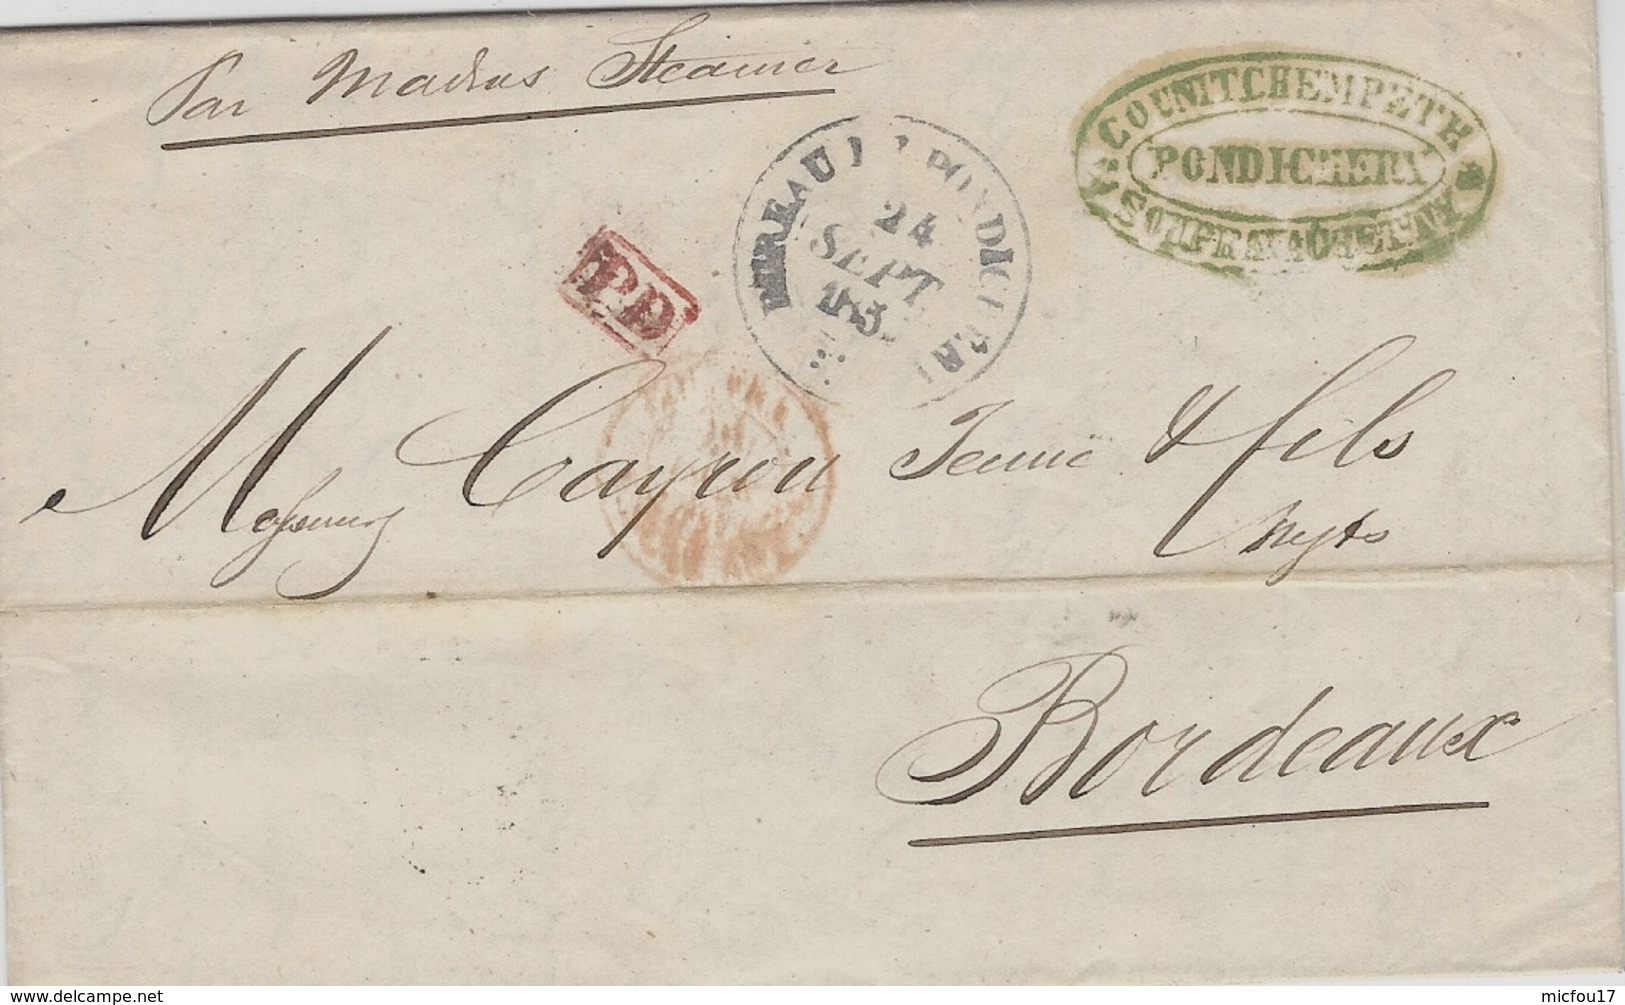 Par Madras Steamer
COUNITCHEMPETH
PONDICHERY
BUREAU PONDICHERY
24
SEPT
PD
Messieurs Cayrou Jeune & fils
Negts
Bordeaux
© www.delcampe.net
micfou17